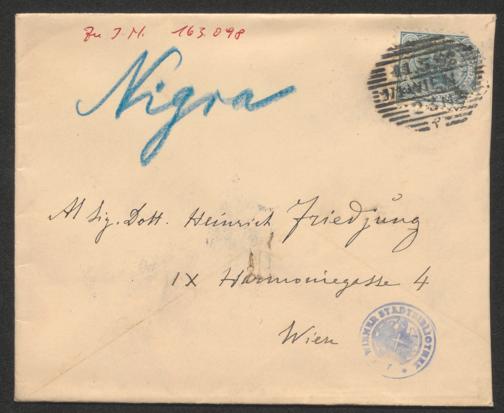 Zu I.N. 163098
Nigra
Al Sig. Dott. Heinrich Friedjung
IX Harmoniegasse 4
Wien
WIENER STADTBIBLIOTHEK